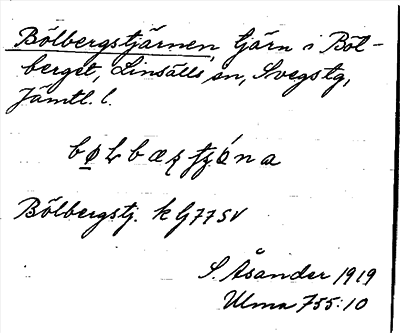 Bölbergstjärnen, tjärn i Böl-
berget, Linsälls sn, Svegs tg,
Jämtl. l.
Bölbergstj. k G77SV
S. Åsander 1919
Ulma 755:10